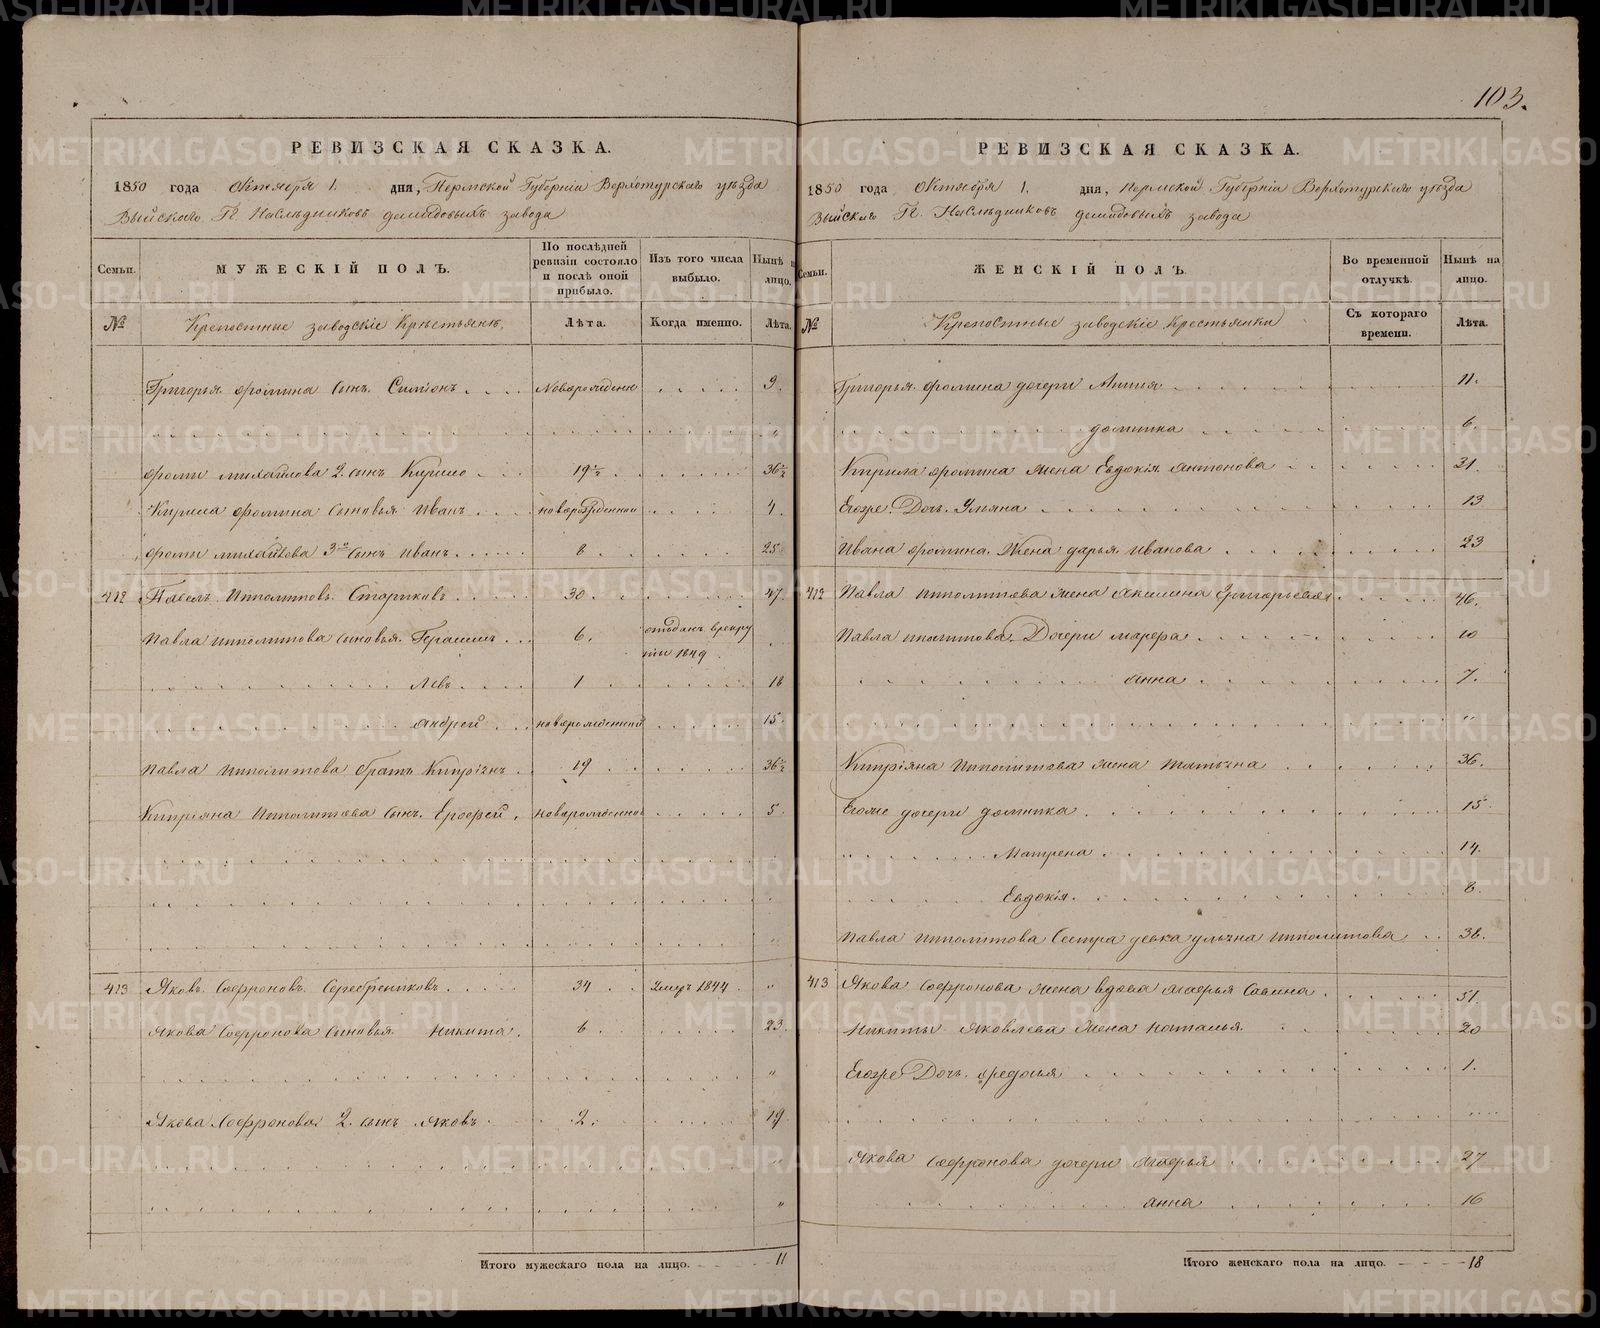 103.
РЕВИЗСКАЯ СКАЗКА.
1850 года Октября 1. дня, Пермской Губерніи Верхотурскаго уѣзда
Выйскаго Г. Наслѣдниковъ демидовыхъ завода
Семьи.
МУЖЕСКІЙ ПОЛЪ.
По послѣдней ревизіи состояло и послѣ оной прибыло.
Изъ того числа выбыло.
Нынѣ на лицо.
№
Крепостные заводскіе Крестьяне.
Лѣта.
Когда именно.
Лѣта.
Григорья фомина сынъ Симіонъ новорожденн 9.
фомы михайлова 2. сынъ Кирило 19½ 36½
Кирила фомина сыновья Иванъ новорожденной 4.
фомы михайлова 3й сынъ иванъ 8 25
412 Павелъ Ипполитовъ Стариковъ 30 47.
Павла ипполитова сыновья Герасимъ 6. отъданъ врекру
ты 1849
Левъ 1 18
андрей новорожденной 15.
Павла ипполитова братъ Кипріянъ 19 36½
Кипріяна Ипполитова сынъ Ерофей новорожденной 5.
413 Яковъ Софроновъ Серебрениковъ 34 умеръ 1844
Якова Софронова сыновья Никита 6 23.
Якова Софронова 2. сынъ яковъ 2. 19
Итого мужескаго пола на лицо. 11
РЕВИЗСКАЯ СКАЗКА.
1850 года Октября 1. дня, Пермской Губерніи Верхотурскаго уѣзда
Выйскаго Г. Наслѣдниковъ демидовыхъ завода
Семьи.
ЖЕНСКІЙ ПОЛЪ.
Во временной отлучкѣ.
Нынѣ на лицо.
№
Крепостные заводскіе Крестьянки
Съ котораго времени.
Лѣта.
Григорья фомина дочери 11.
домника 6.
Кирила фомина жена Евдокія антонова 31.
Егоже Дочь Ульяна 13
Ивана фомина Жена дарья иванова 23
412 Павла ипполитова жена акилина Григорьевая 46.
Павла иполитова Дочери марфа 10
анна 7.
Кипріяна Ипполитова жена татьяна 36.
Егоже дочери домника 15
Матрена 14.
Евдокія 8.
Павла ипполитова Сестра девка ульяна ипполитова 38.
413 Якова Софронова жена вдова Марья Савина 51.
Никиты Яковлева жена наталья 20
Егоже Дочь федосья 1.
Якова Софронова дочери Марья 27
анна 16
Итого женскаго пола на лицо. 18
METRIKI.GASO-URAL.RU